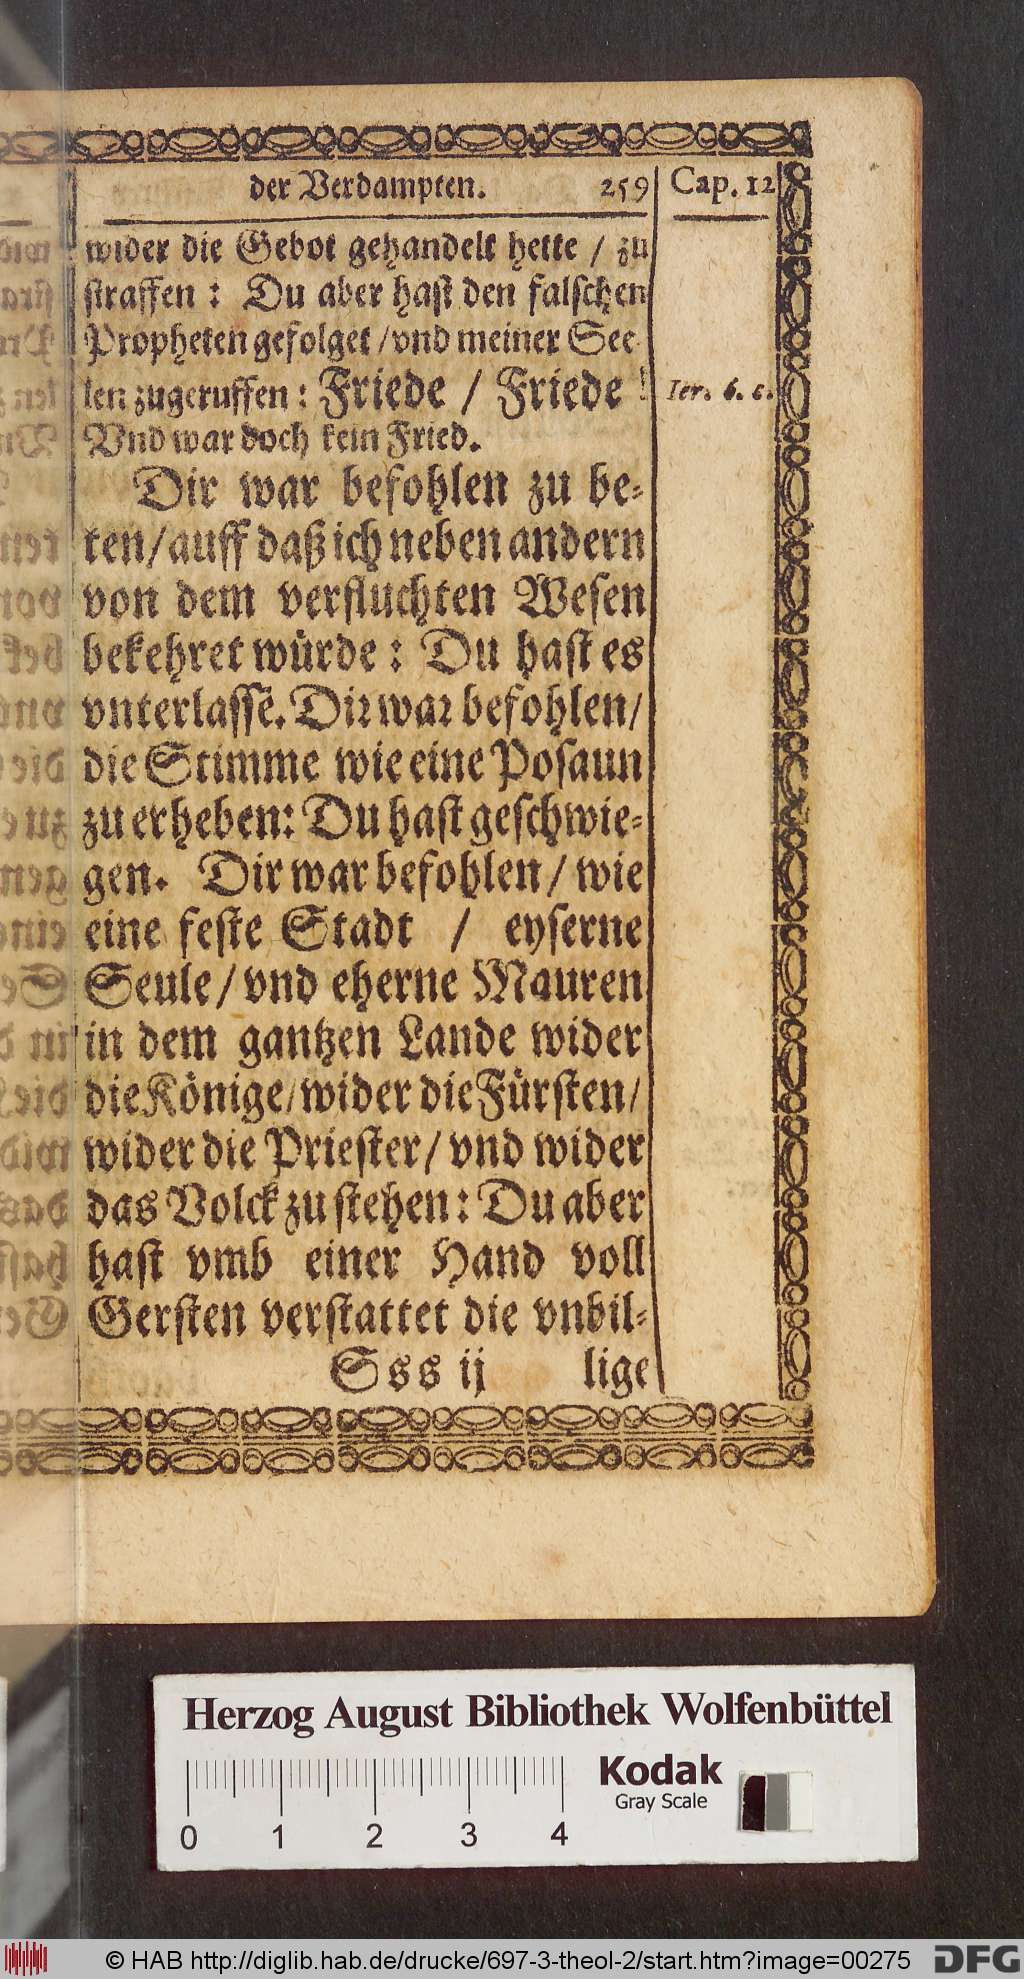 der Verdampten. 259 Cap. 12
wider die Gebot gehandelt hette / zu
straffen : Du aber hast den falschen
Propheten gefolget / vnd meiner See
len zugeruffen : Friede / Friede !
Ier. 6. c.
Vnd war doch kein Fried.
Dir war befohlen zu be-
ten / auff daß ich neben andern
von dem verfluchten Wesen
bekehret würde : Du hast es
vnterlassē. Dir war befohlen /
die Stimme wie eine Posaun
zu erheben: Du hast geschwie-
gen. Dir war befohlen / wie
eine feste Stadt / eyserne
Seule / vnd eherne Mauren
in dem gantzen Lande wider
die Könige / wider die Fürsten /
wider die Priester / vnd wider
das Volck zu stehen : Du aber
hast vmb einer Hand voll
Gersten verstattet die vnbil-
Sss ij lige
Herzog August Bibliothek Wolfenbüttel
Kodak
Gray Scale
0 1 2 3 4
© HAB http://diglib.hab.de/drucke/697-3-theol-2/start.htm?image=00275 DFG